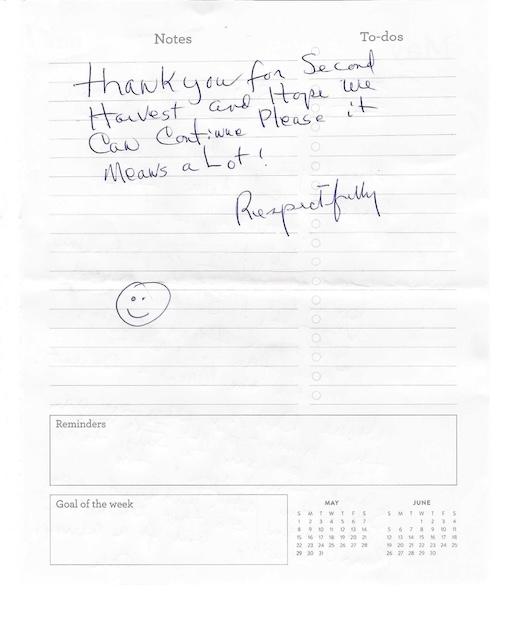 Notes
To-dos
Thank you for Second
Harvest and Hope we
Can Continue Please it
Means a Lot!
Respectfully
Reminders
Goal of the week
MAY
S M T W T F S
1 2 3 4 5 6 7
8 9 10 11 12 13 14
15 16 17 18 19 20 21
22 23 24 25 26 27 28
29 30 31
JUNE
S M T W T F S
1 2 3 4
5 6 7 8 9 10 11
12 13 14 15 16 17 18
19 20 21 22 23 24 25
26 27 28 29 30